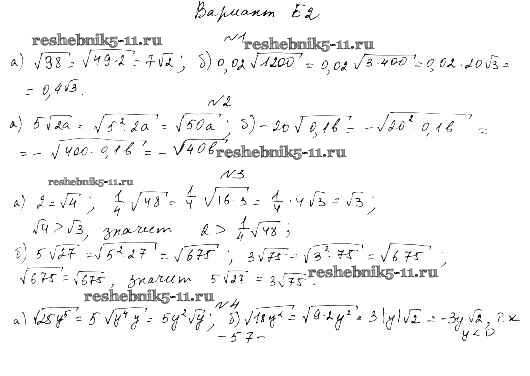 Вариант Б2
reshebnik5-11.ru
№1
а) √98 = √49·2 = 7√2; б) 0,02√1200 = 0,02√3·400 = 0,02·20√3 =
= 0,4√3.
№2
а) 5√2a = √5²·2a = √50a; б) -20√0,1b = -√20²·0,1b =
= -√400·0,1b = -√40b
reshebnik5-11.ru
reshebnik5-11.ru
№3
а) 2 = √4; 1/4√48 = 1/4√16·3 = 1/4·4√3 = √3;
√4 > √3, значит 2 > 1/4√48;
б) 5√27 = √5²·27 = √675; 3√75 = √3²·75 = √675;
√675 = √675, значит 5√27 = 3√75.
reshebnik5-11.ru
reshebnik5-11.ru
№4
а) √25y⁵ = 5√y⁴y = 5y²√y; б) √18y² = √9·2y² = 3|y|√2 = -3y√2, т.к
y<0
-57-